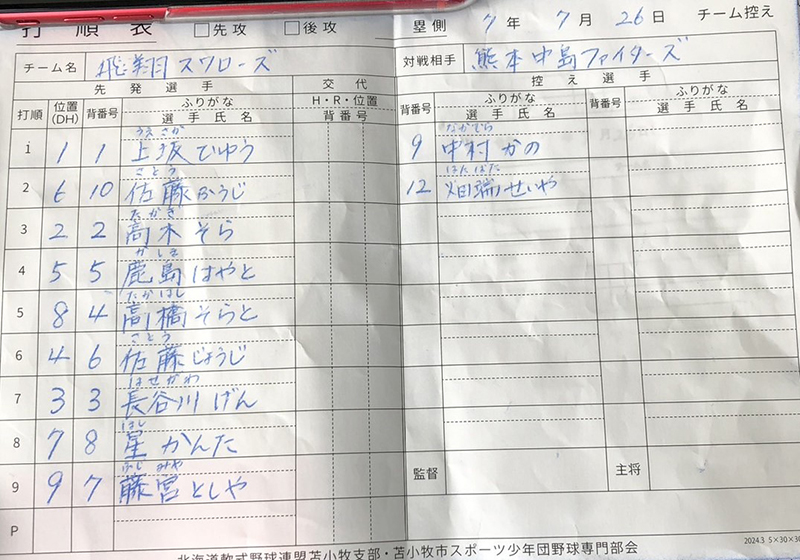 打順表 □先攻 □後攻 塁側 7年7月26日 チーム控え
チーム名 飛翔スワローズ 対戦相手 熊本中島ファイターズ
先発選手 交代 控え選手
打順 位置(DH) 背番号 ふりがな 選手氏名 H・R・位置 背番号 背番号 ふりがな 選手氏名 背番号 ふりがな 選手氏名
うえさか なかでら
1 1 1 上坂ひゅう 9 中村かの
さとう はたばた
2 6 10 佐藤ふうじ 12 畑端せいや
たかぎ
3 2 2 高木そら
かしま
4 5 5 鹿島はやと
たかはし
5 8 4 高橋そらと
さとう
6 4 6 佐藤じょうじ
はせがわ
7 3 3 長谷川げん
ほし
8 7 8 星かんた
ふじみや
9 9 7 藤宮としや 監督 主将
P
2024.3 5×30×30
北海道軟式野球連盟苫小牧支部・苫小牧市スポーツ少年団野球専門部会